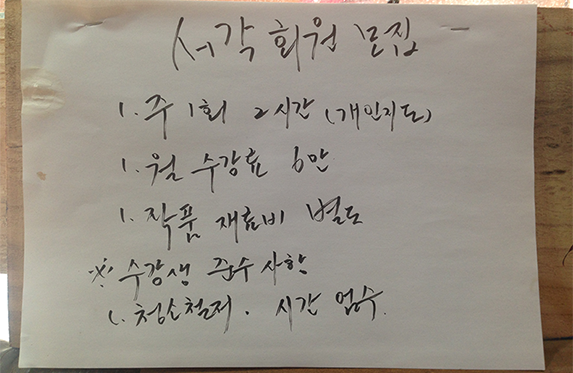 서각 회원 모집
1. 주 1회 2시간 (개인지도)
1. 월 수강료 6만
1. 작품 재료비 별도
※ 수강생 준수 사항
1. 청소철저. 시간 엄수.